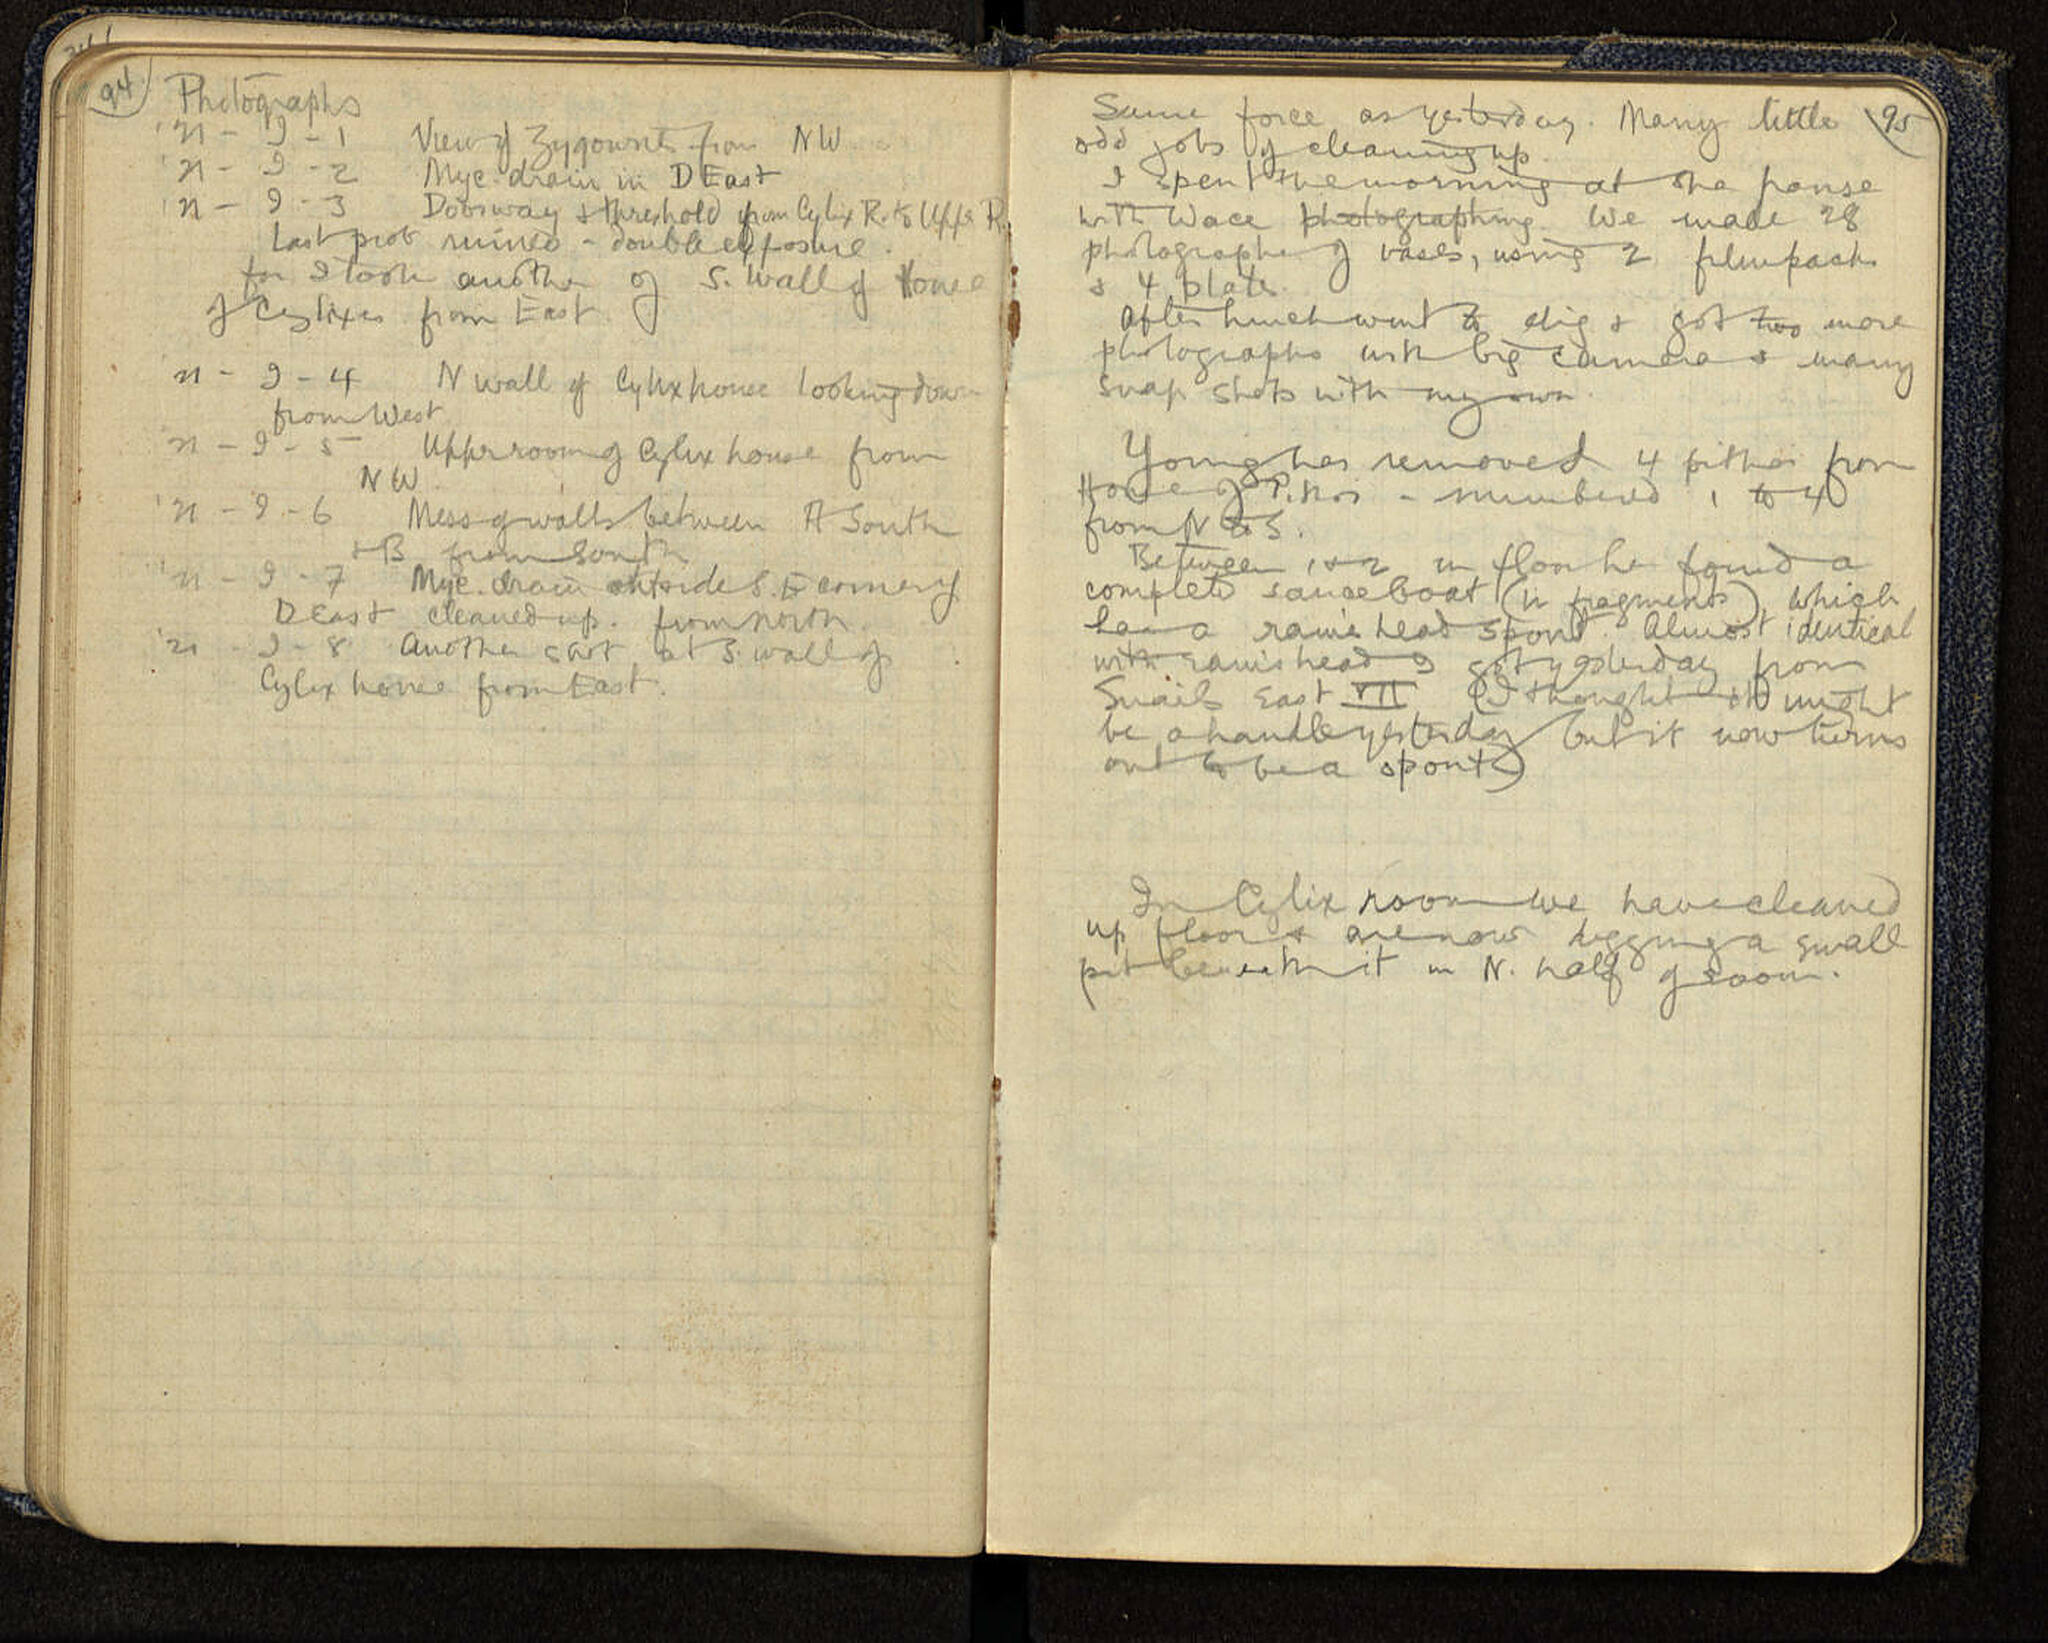 94
Photographs
'21 - I - 1 View of Zygouries from NW
'21 - I - 2 Myc. drain in D East
'21 - I - 3 Doorway & threshold from Cylix R. to Upper R.
Last prob ruined - double exposure.
for I took another of S. Wall of House
of Cylixes from East.
21 - I - 4 N wall of Cylix house looking down
from West
'21 - I - 5 Upper room of Cylix house from
NW.
'21 - I - 6 Mess of walls between A South
& B from South
'21 - I - 7 Myc. drain outside S. E corner of
D East cleaned up. from north.
'21 - I - 8 Another shot at S. wall of
Cylix house from East.
95
Same force as yesterday. Many little
odd jobs of cleaning up.
I spent the morning at the house
with Wace photographing. We made 28
photographs of vases, using 2 filmpacks
& 4 plates.
After lunch went to dig & got two more
photographs with big camera & many
snap shots with my own.
Young has removed 4 pithoi from
House of Pithoi - numbered 1 to 4
from N to S.
Between 1 & 2 in floor he found a
complete sauceboat (in fragments), which
has a ram's head spout. Almost identical
with ram's head I got yesterday from
Snails East VII (I thought it might
be a handle yesterday but it now turns
out to be a spout)
In Cylix room we have cleaned
up floor & are now digging a small
pit beneath it in N. half of room.